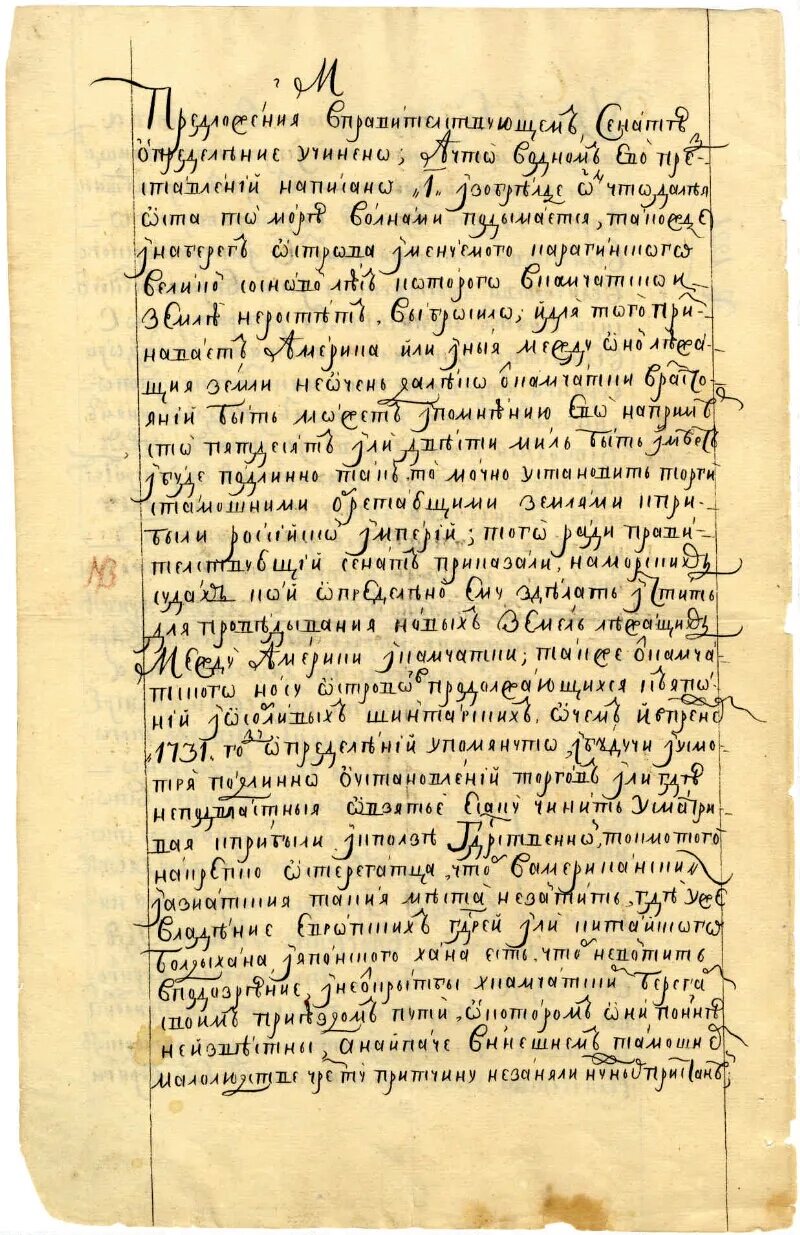 М
Предложения вправителствующемъ Сенатѣ
определѣние учинено; Ачто водномъ его пре-
ставлений написано „1„ изобрѣлде что далѣя
оста то море волнами подымается, такожде
инаберегъ острова именуемого карагинского
великой соснаволѣсъ которого вкамчатской
землѣ неростѣтъ, выбросило; идля того при-
кала͡етъ Америка или иныя между оной лѣжа-
щия земли неочень далѣко окамчатки врасто-
яний быть можетъ, ипомнѣнию его наприм
сто пятдесятъ или двѣсти миль быть имѣетъ
ибуде подлинно такъ, то мочно установить торги
стамошними обретающими землями кпри-
были россійской империй; того ради прави-
телствующій сенатъ приказали, наморскихъ
судахъ кой определено ему здѣлать иитить
для проведывания новыхъ земель лѣжащихъ
между Америки икамчатки; также окамча-
тского носу острововъ продолжающихся къяпо-
ний иособливыхъ шинтарскихъ, очемъ йвпреже
„1731„ го определѣний упомянуто, ибудучи иусмо-
тря поѣлинно оустановлений торговъ или гдѣ
неподвластныя овзятье ясаку чинить усматри-
вая кприбыли ипользѣ Гдрственной, токмотого
накрепко остерегатца, чтоб вамериканския
иазиатския такия мѣста незаѣтить, гдѣ уже
владѣние европскихъ гдрей или китайского
болдыхана, ияпонского хана есть, чтоб непотить
вподозрѣние, инеоткрыть ккамчатским берега
своимъ приѣздомъ путй, окоторомъ они поннѣ
неизвѣстны, анайпаче внинешнемъ тамошне
малолюдстве чрезту притчину незаняли нужныхъ пристанъ;
NB